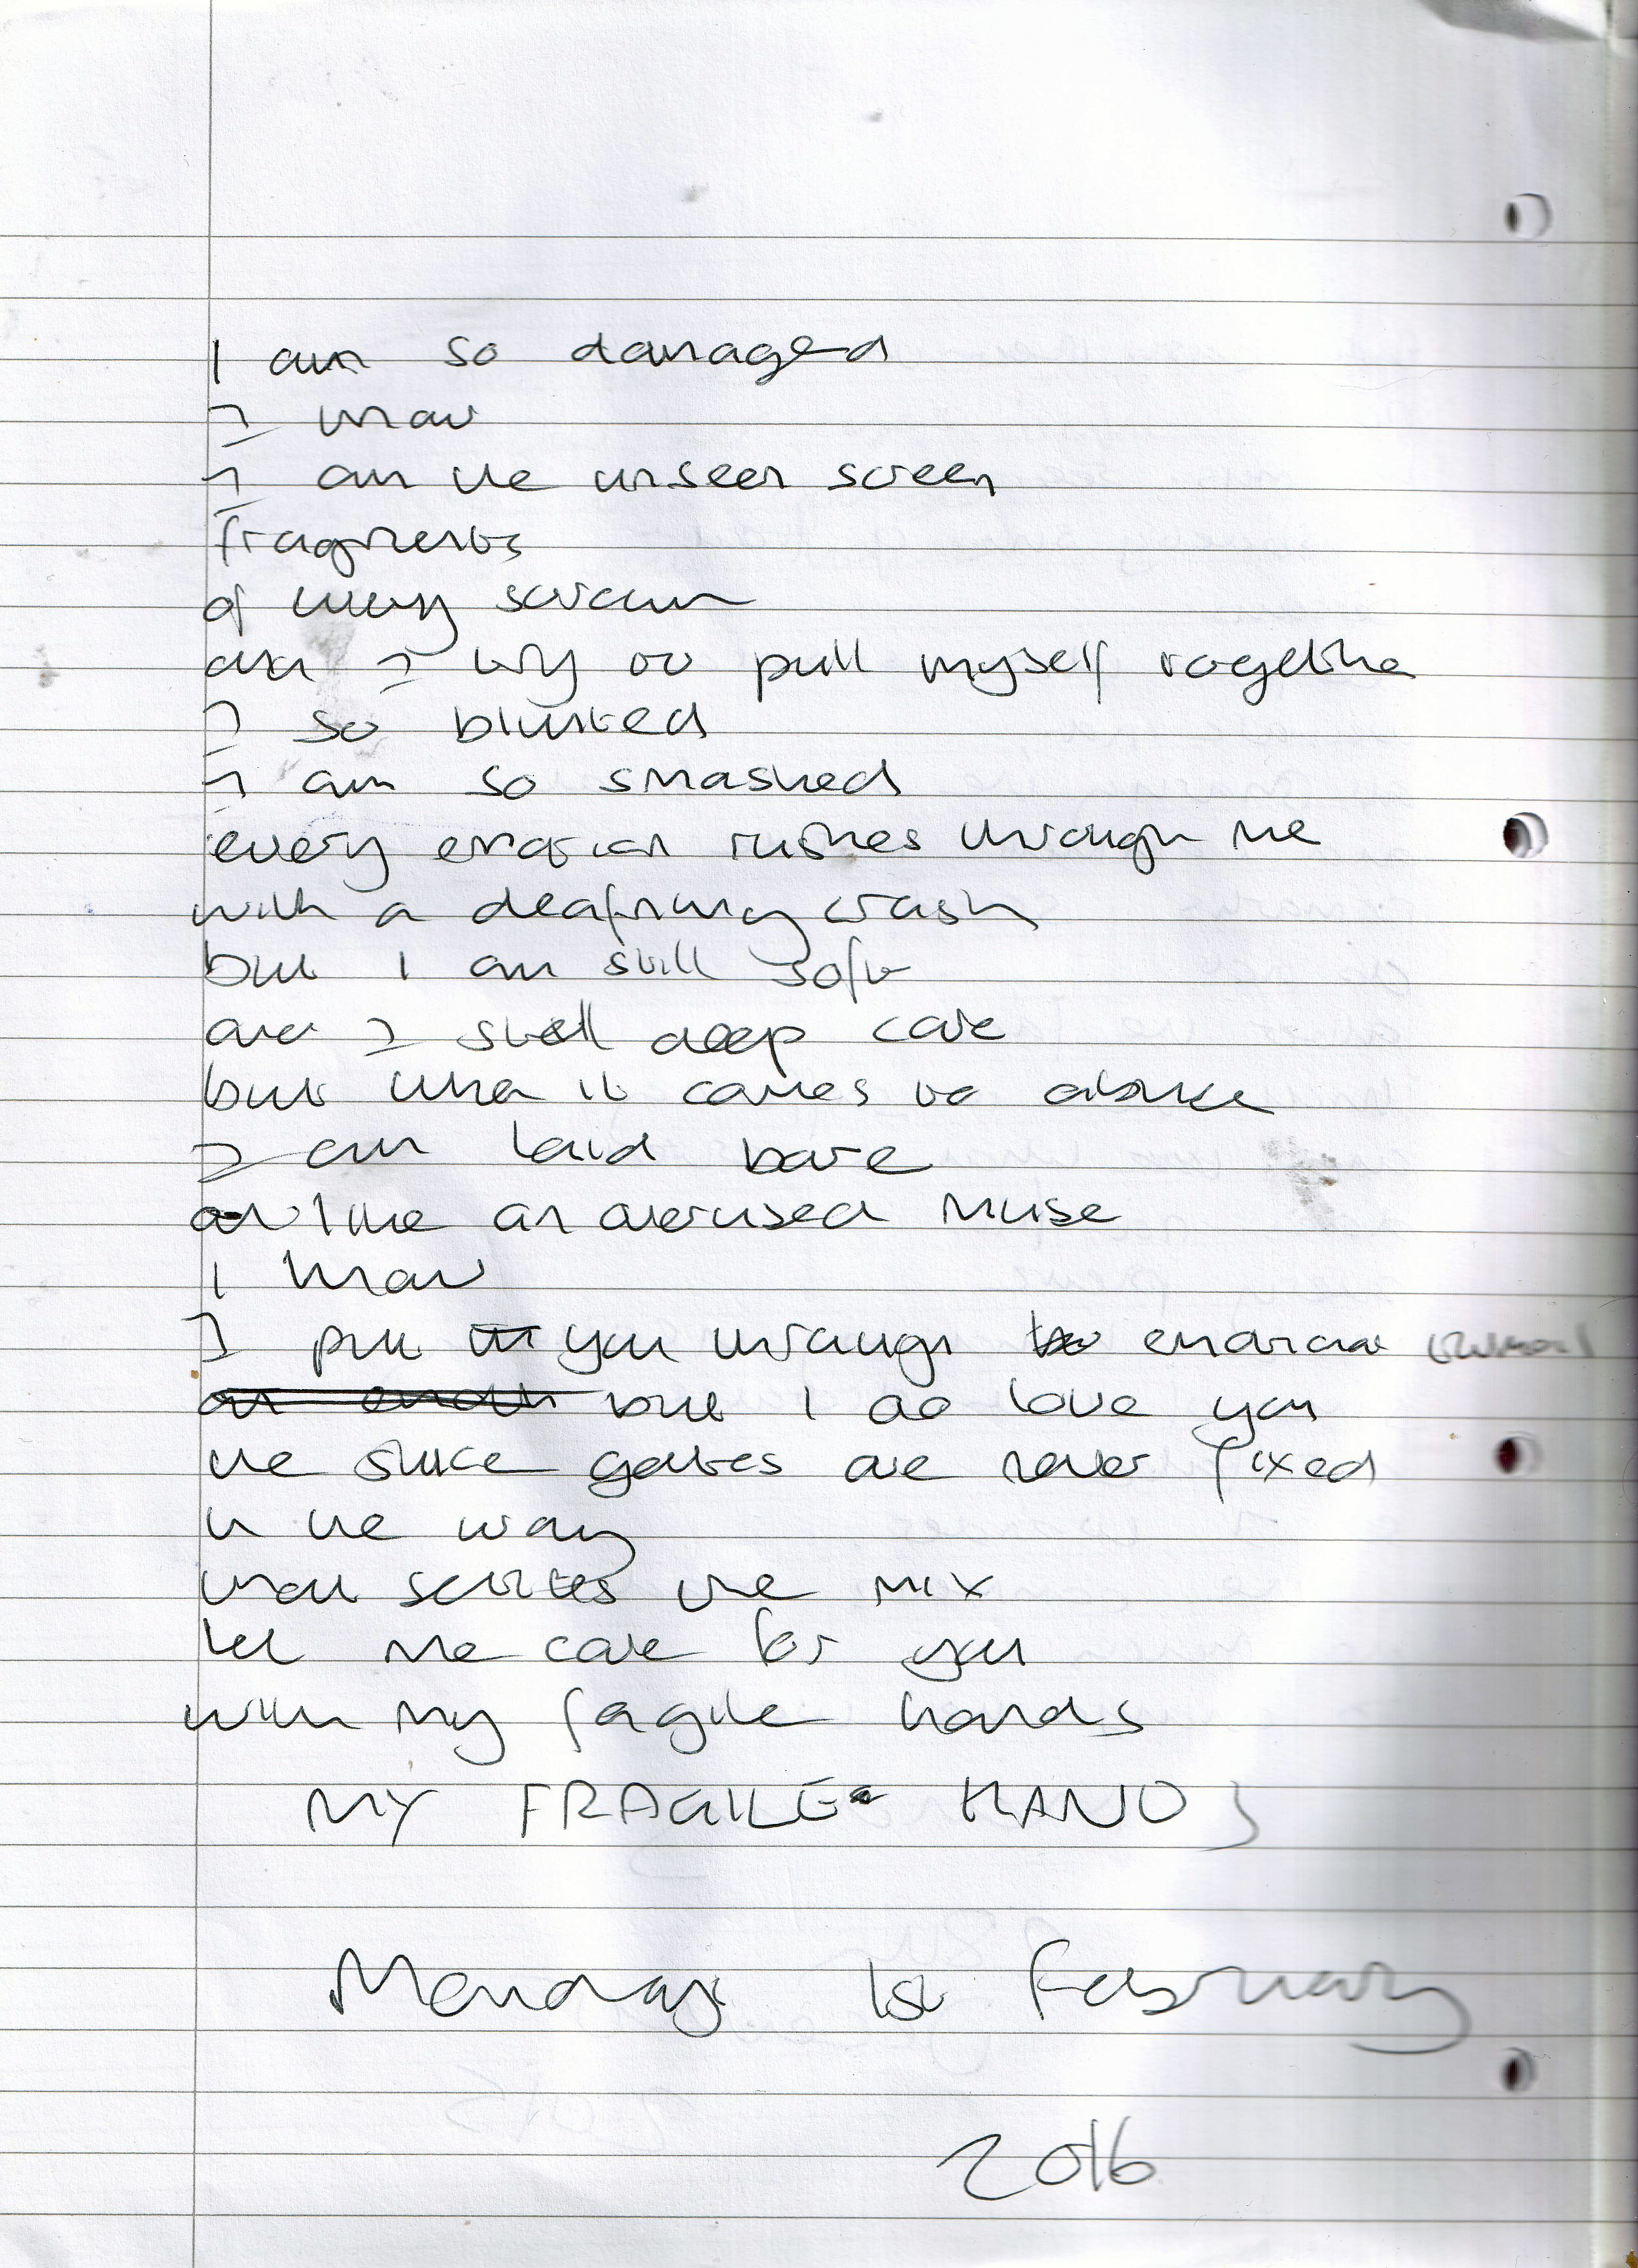 I am so damaged
I know
I am the unseen screen
fragments
of every scream
and I try to pull myself together
I so blunted
I am so smashed
every emotion rushes through me
with a deafning crash
but I am still soft
and I still deep care
but when it comes to abuse
I am laid bare
like an overused muse
I know
I put you through emotional turmoil
but I do love you
the sluice gates are never fixed
in the way
that the mix
let me care for you
with my fagile hands
MY FRAGILE HANDS
Monday 1st February
2016